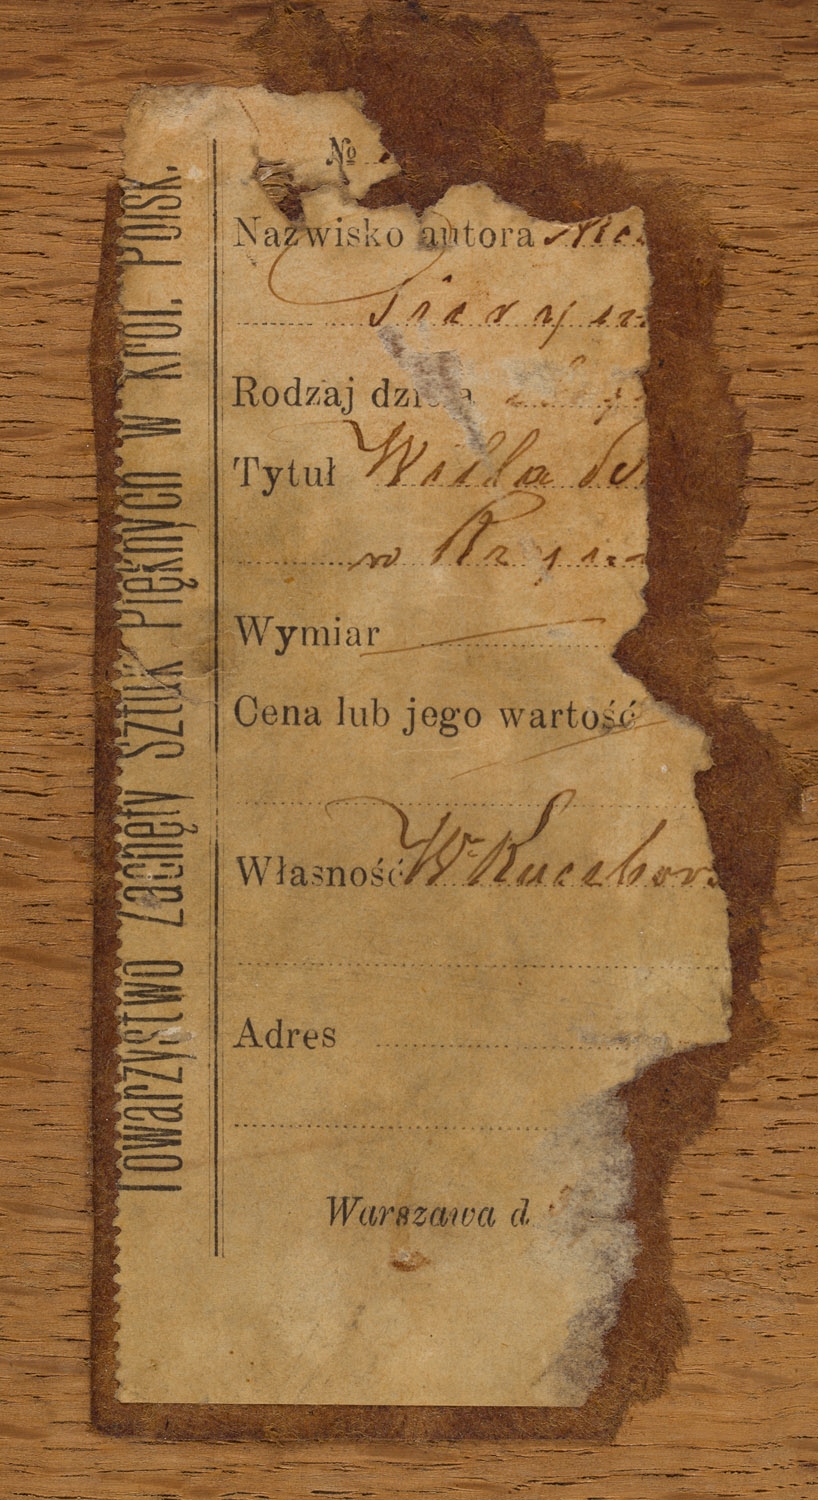 Towarzystwo Zachęty Sztuk Pięknych w Król. Polsk.
№
Nazwisko autora
Gierym
Rodzaj dzieła
Tytuł Willa
w Rzym
Wymiar
Cena lub jego wartość
Własność Wr Kuczbor
Adres
Warszawa d